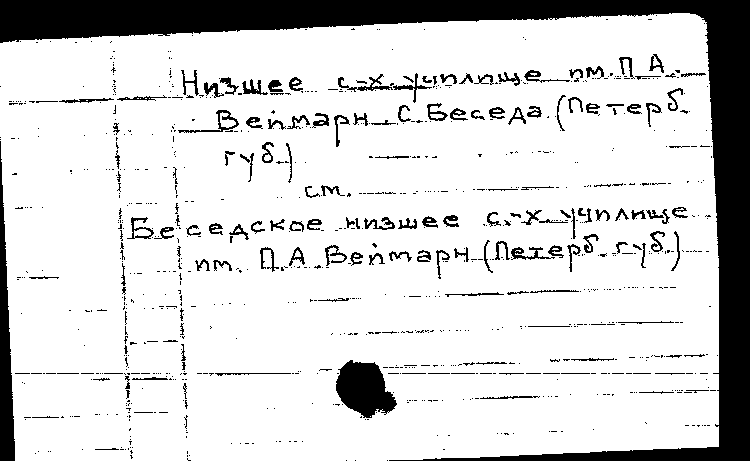 Низшее с.-х. училище им. П.А.
Веймарн. С. Беседа. (Петерб.
губ.)
см.
Беседское низшее с.-х. училище
им. П.А. Веймарн (Петерб. губ.)